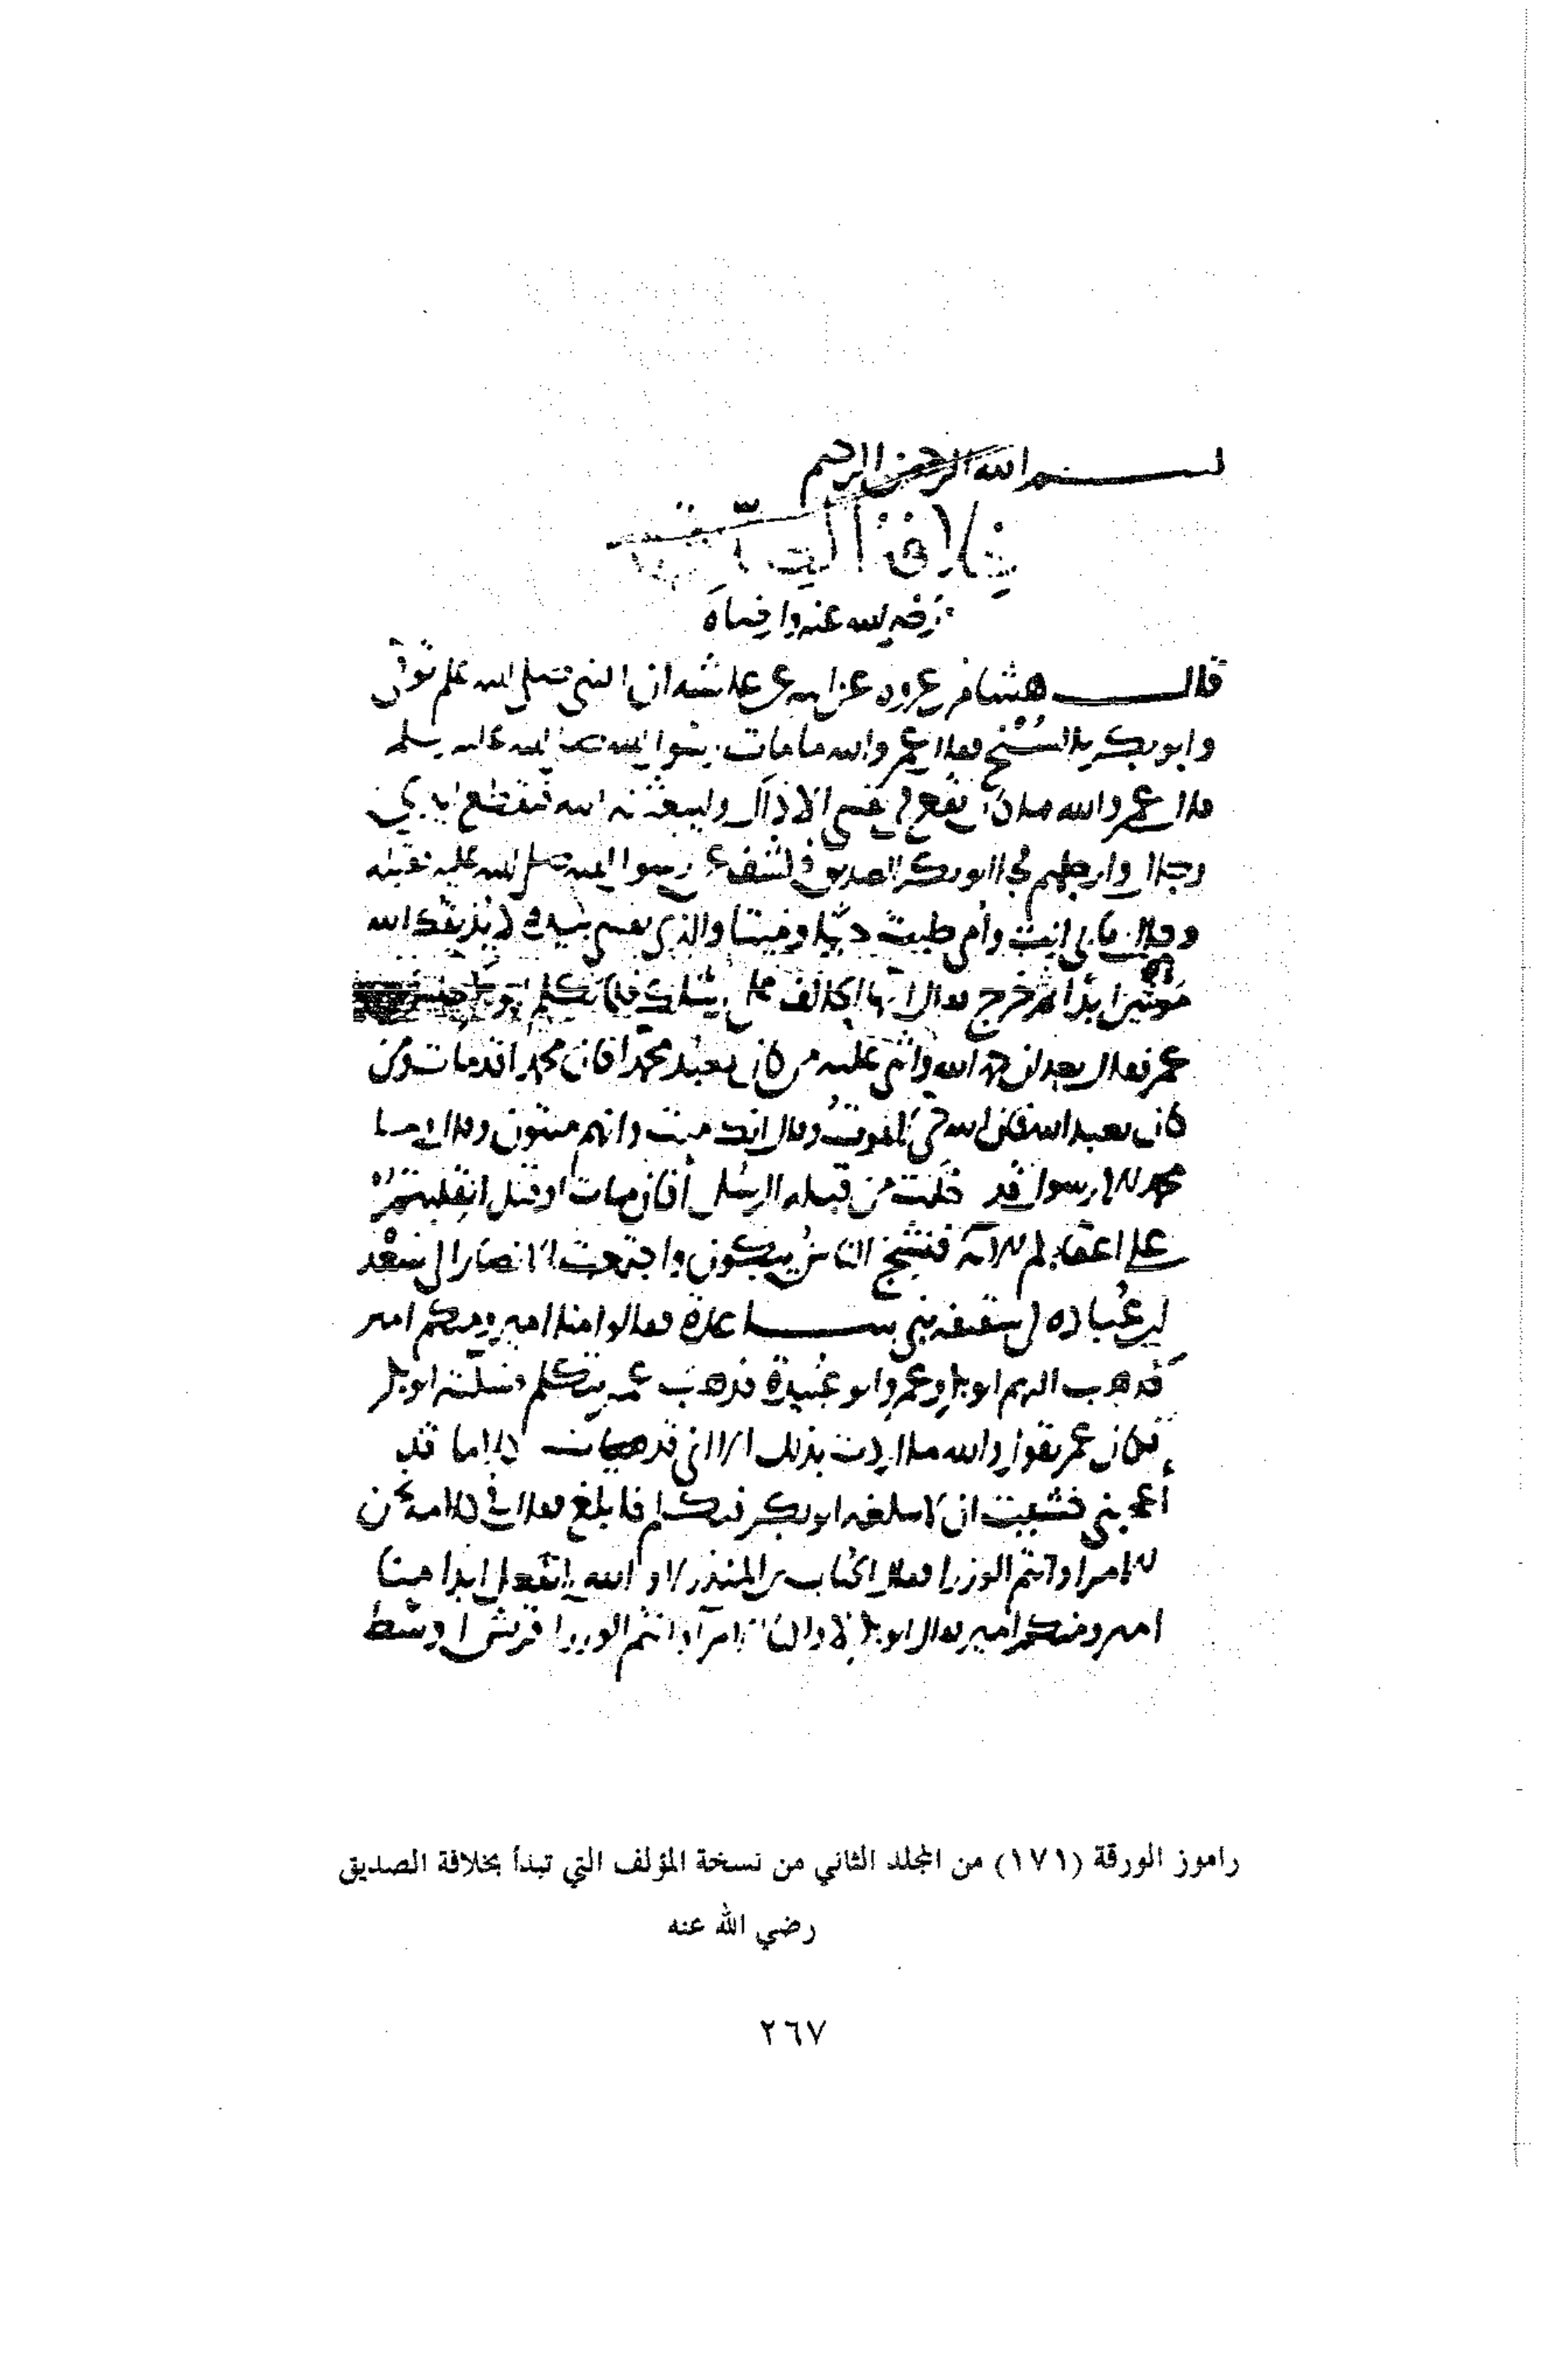 بسم الله الرحمن الرحيم
خلافة الصديق
رضي الله عنه وارضاه
قال هشام بن عروه عن ابيه عن عائشه ان النبي صلى الله عليه وسلم توفي
وابو بكر بالسنح فقال عمر والله ما مات رسول الله صلى الله عليه وسلم
قال عمر والله ما كان يقع في نفسي الا ذاك وليبعثنه الله فيقطع ايدي
رجال وارجلهم فجا ابو بكر الصديق فكشف عن رسول الله صلى الله عليه فقبله
وقال بابي انت وامي طبت حيا وميتا والذي نفسي بيده لا يذيقك الله
موتتين ابدا ثم خرج فقال ايها الحالف على رسلك فلما تكلم ابو بكر جلس
عمر فقال بعد ان حمد الله واثنى عليه من كان يعبد محمدا فان محمدا قد مات ومن
كان يعبد الله فان الله حي لا يموت وقال انك ميت وانهم ميتون وقال وما
محمد الا رسول قد خلت من قبله الرسل أفان مات او قتل انقلبتم
على اعقابكم الآية فنشج الناس يبكون واجتمعت الانصار الى سعد
بن عباده في سقيفه بني ساعدة فقالوا منا امير ومنكم امير
فذهب اليهم ابو بكر وعمر وابو عبيدة فذهب عمر يتكلم فسكته ابو بكر
فكان عمر يقول والله ما اردت بذلك الا اني قد هيات كلاما قد
أعجبني خشيت ان لا يبلغه ابو بكر فتكلم فابلغ فقال في كلامه نحن
الامرا وانتم الوزرا فقال الحباب بن المنذر لا والله لا نفعل ابدا منا
امير ومنكم امير فقال ابو بكر لا ولكنا الامرا وانتم الوزرا قريش اوسط
راموز الورقة (١٧١) من المجلد الثاني من نسخة المؤلف التي تبدأ بخلافة الصديق
رضي الله عنه
٢٦٧